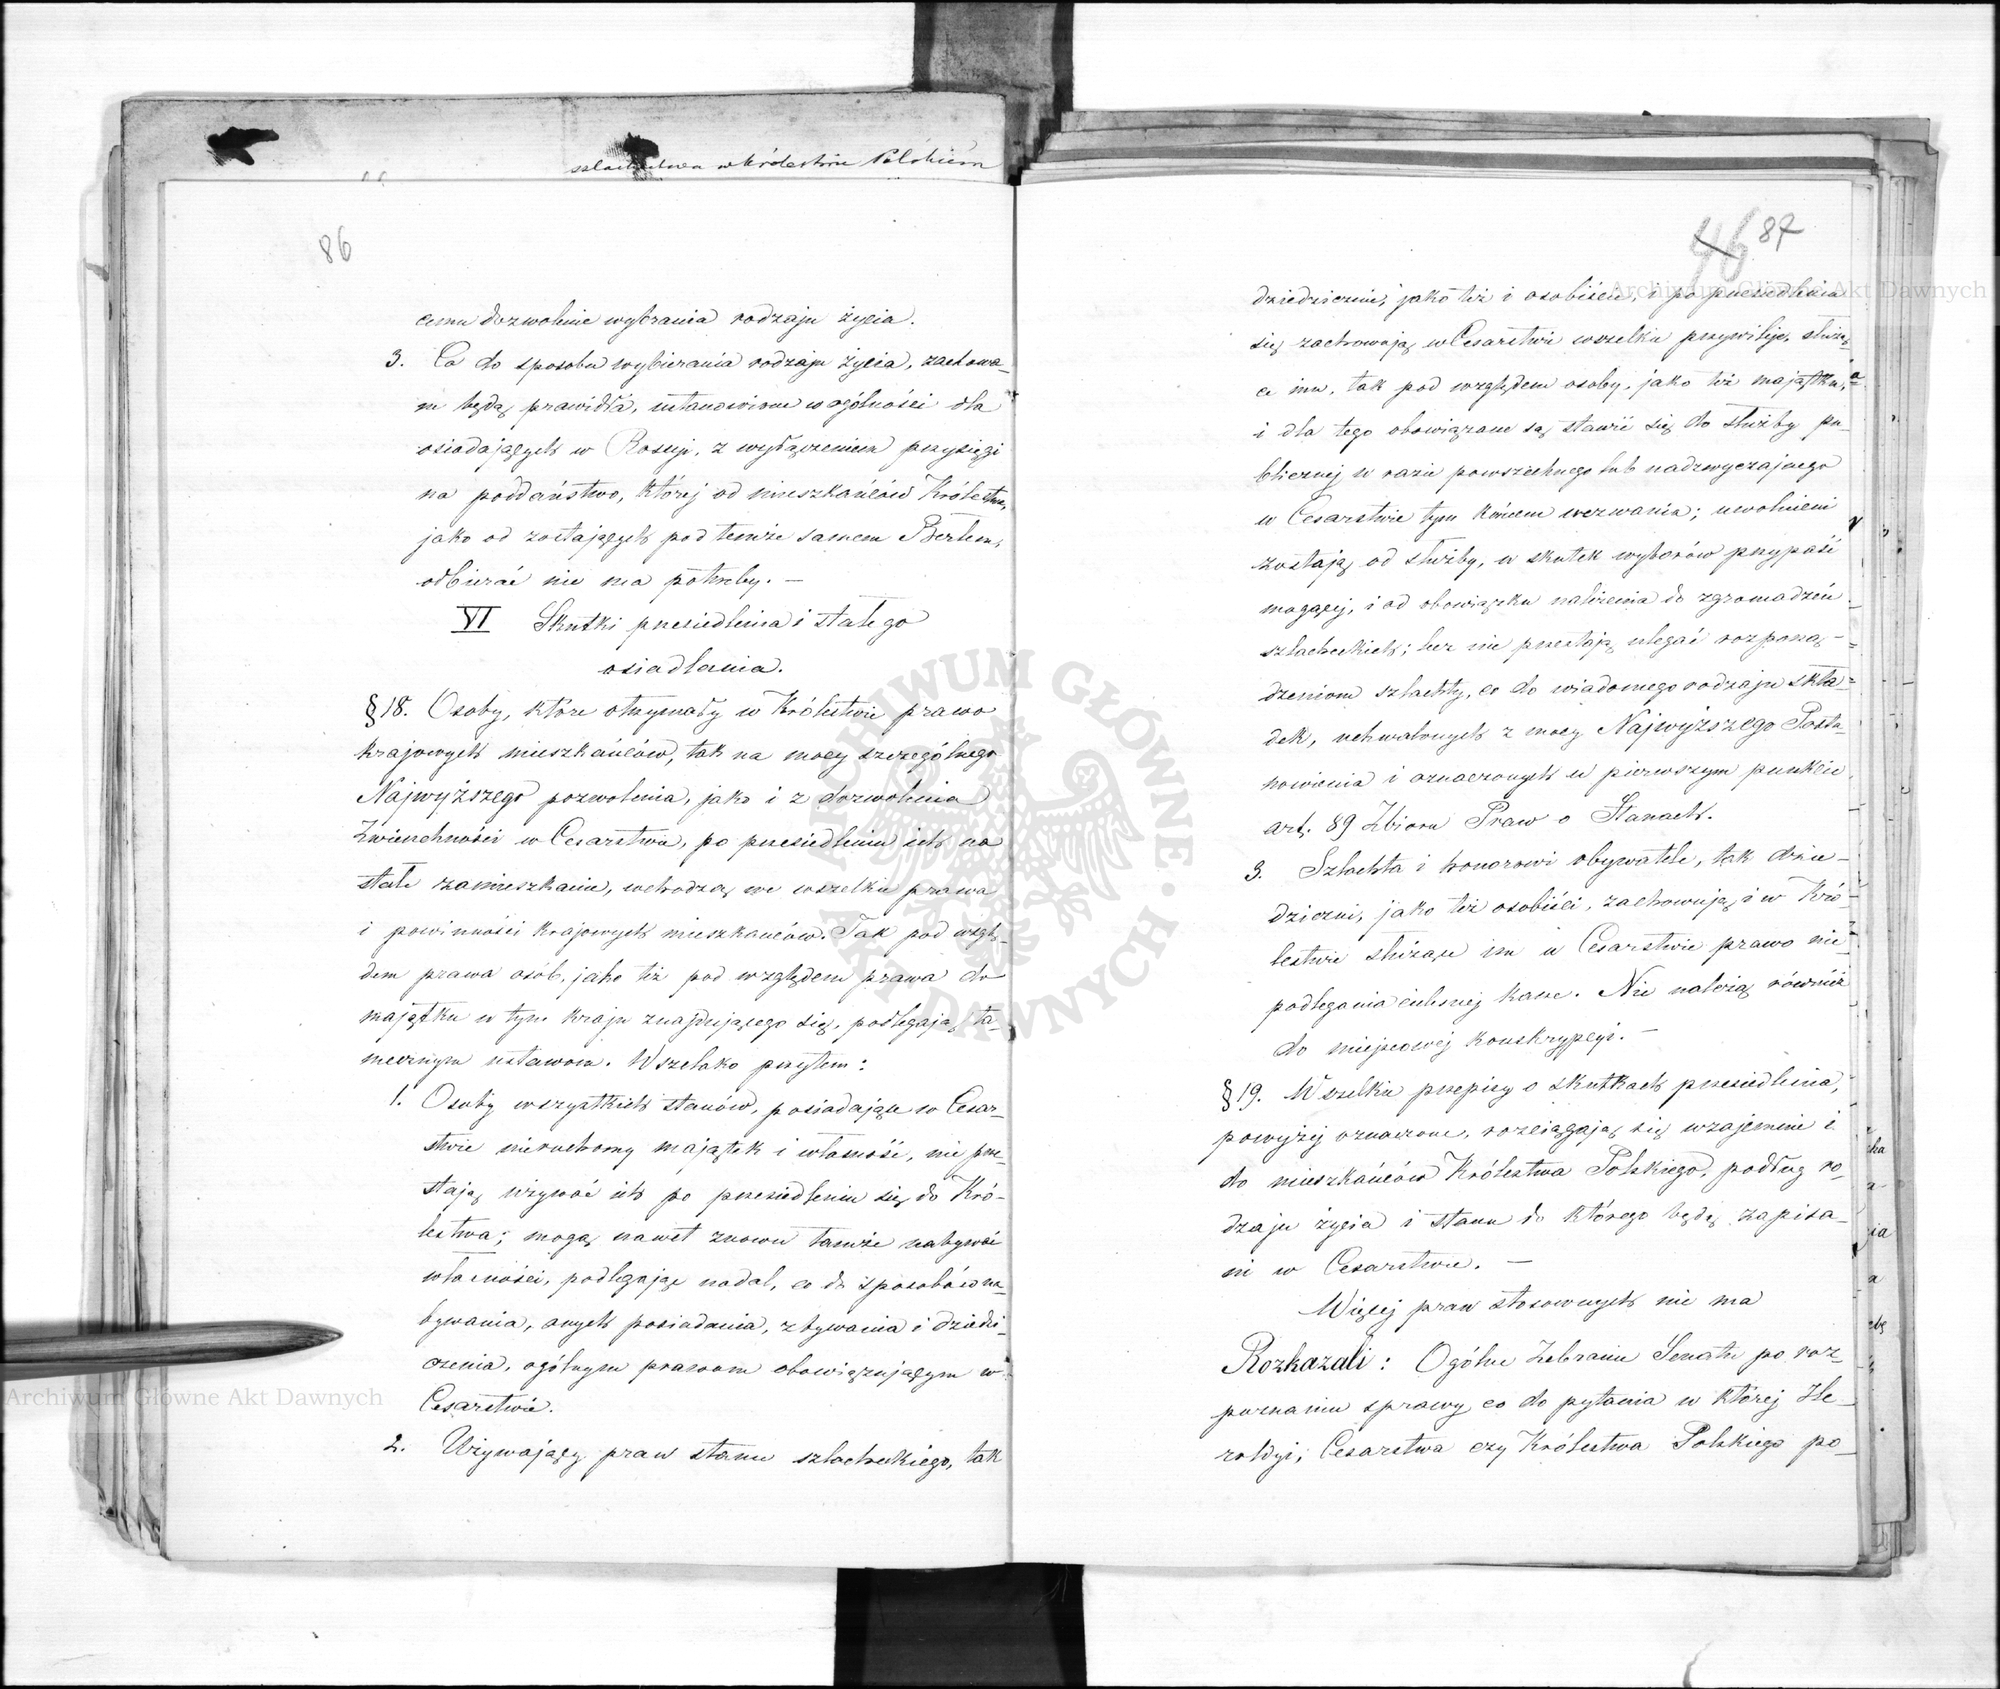 szlachectwa w Królestwie Polskiém
86
cemu dozwolenie wybrania rodzaju życia.
3. Co do sposobu wybierania rodzaju życia, zachowa-
ne będą prawidła, ustanowione w ogólności dla
osiadających w Rossyi, z wyłączeniem przysięgi
na poddaństwo, której od mieszkańców Królestwa,
jako od zostających pod temże samem Berłem,
odbierać nie ma potrzeby. —
VI Skutki przesiedlenia i stałego
osiadłania.
§ 18. Osoby, które otrzymały w Królestwie prawo
krajowych mieszkańców, tak na mocy szczególnego
Najwyższego pozwolenia, jako i z dozwolenia
Zwierzchności w Cesarstwie, po przesiedleniu ich na
stałe zamieszkanie, wchodzą we wszelkie prawa
i powinności krajowych mieszkańców. Tak pod wzglę-
dem prawa osób, jako też pod względem prawa do
majątku w tym kraju znajdującego się, podlegają ta-
mecznym ustawom. Wszelako przytem:
1. Osoby wszystkich stanów, posiadające w Cesar-
stwie nieruchomy majątek i własność, nie prze-
stają używać ich po przesiedleniu się do Kró-
lestwa; mogą nawet znowu tamże nabywać
własności, podlegając nadal, co do sposobów na-
bywania, onych posiadania, zbywania i dziedzi-
czenia, ogólnym prawom obowiązującym w
Cesarstwie.
2. Używający praw stanu szlacheckiego, tak
46 87
dziedzicznie, jako też i osobiście, i po przesiedleniu
się zachowają w Cesarstwie wszelkie przywileje, służą-
ce im, tak pod względem osoby, jako też majątku,
i dla tego obowiązane są stawić się do służby pu-
blicznej w razie powszechnego lub nadzwyczajnego
w Cesarstwie tym końcem wezwania; uwolnieni
zostają od służby, w skutek wyborów przypaść
mogącej, i od obowiązku należenia do zgromadzeń
szlacheckich; lecz nie przestają ulegać rozporzą-
dzeniom szlachty, co do wiadomego rodzaju skła-
dek, uchwalonych z mocy Najwyższego Posta-
nowienia i oznaczonych w pierwszym punkcie
art. 89 Zbioru Praw o Stanach.
3. Szlachta i honorowi obywatele, tak dzie-
dziczni, jako też osobiści, zachowują i w Kró-
lestwie służące im w Cesarstwie prawo nie
podlegania cielesnej karze. Nie należą również
do miejscowej konskrypcyi. —
§ 19. Wszelkie przepisy o skutkach przesiedlenia,
powyżej oznaczone, rozciągają się wzajemnie i
do mieszkańców Królestwa Polskiego, podług ro-
dzaju życia i stanu do którego będą zapisa-
ni w Cesarstwie. —
Więcej praw stosownych nie ma
Rozkazali: Ogólne Zebranie Senatu po roz-
poznaniu sprawy co do pytania w której He-
roldyi, Cesarstwa czy Królestwa Polskiego po-
Archiwum Główne Akt Dawnych
Archiwum Główne Akt Dawnych
ARCHIWUM GŁÓWNE • AKT DAWNYCH